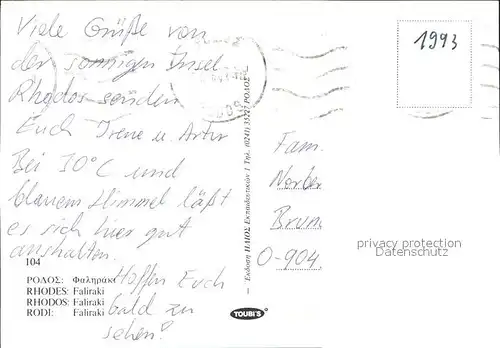 Viele Grüße von
der sonnigen Insel
Rhodos senden
Euch Irene u. Artur
Bei 30°C und
blauem Himmel läßt
es sich hier gut
aushalten.
Hoffen Euch
bald zu
sehen!
104
ΡΟΔΟΣ: Φαληράκι
RHODES: Faliraki
RHODOS: Faliraki
RODI: Faliraki
Έκδοση ΗΛΙΟΣ Εκπαιδευτικών 1 Τηλ. (0241) 35727 ΡΟΔΟΣ
TOUBI'S
1993
Fam.
Norber
Brun
O-904
privacy protection
Datenschutz